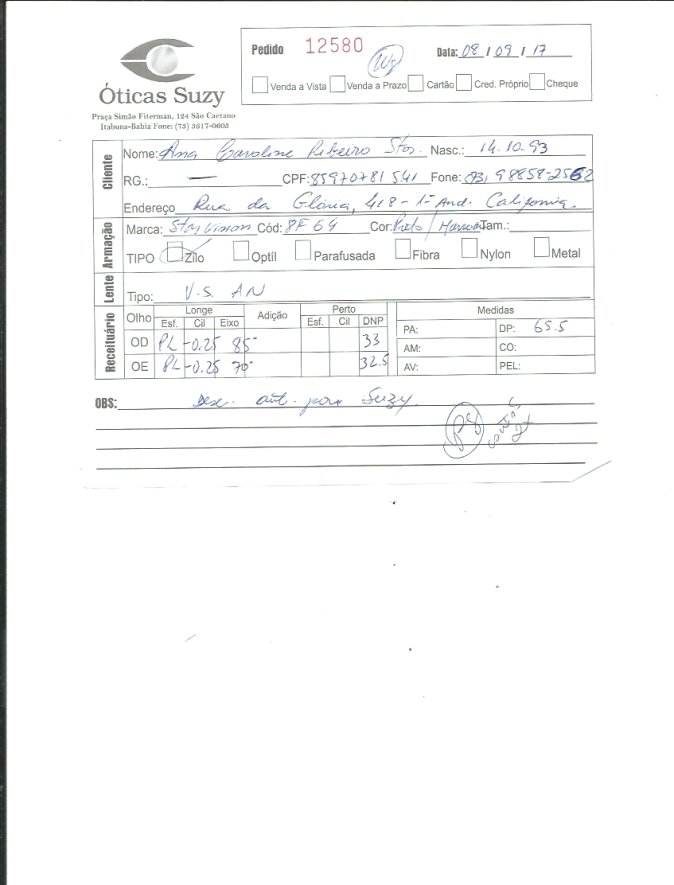 Pedido 12580 Data: 08 / 09 / 17
Venda a Vista Venda a Prazo Cartão Cred. Próprio Cheque
Óticas Suzy
Praça Simão Fiterman, 124 São Caetano
Itabuna-Bahia Fone: (73) 3617-0603
Cliente
Nome: Ana Caroline Ribeiro Stos. Nasc.: 14.10.93
RG.: — CPF: 85970781541 Fone: 98858-2562
Endereço Rua da Glória, 418 - 1º And. California.
Armação
Marca: Cód: 8F64 Cor: Preto / Tam.:
TIPO Zilo Optil Parafusada Fibra Nylon Metal
Lente
Tipo: V.S. AN
Receituário
Olho Longe Adição Perto Medidas
Esf. Cil Eixo Esf. Cil DNP
OD PL -0.25 85° 33 PA: DP: 65.5
AM: CO:
OE PL -0.25 70° 32.5 AV: PEL:
OBS: Desc. aut. por Suzy.